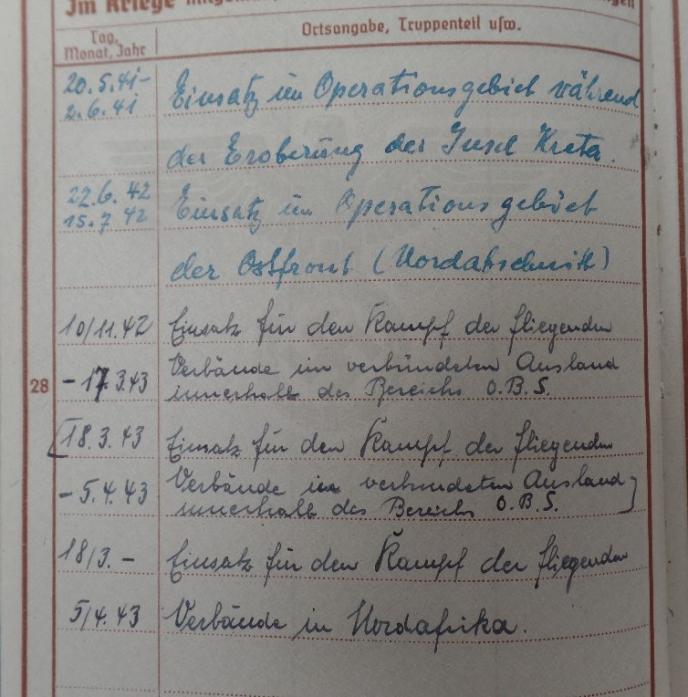 Im Kriege
Tag, Monat, Jahr
Ortsangabe, Truppenteil usw.
20.5.41- Einsatz im Operationsgebiet während
2.6.41
der Eroberung der Insel Kreta.
22.6.42 Einsatz im Operationsgebiet
15.7 42
der Ostfront (Nordabschnitt)
10/11.42 Einsatz für den Kampf der fliegenden
- 17.3.43 Verbände im verbündeten Ausland
28
innerhalb des Bereichs O.B.S.
[18.3.43 Einsatz für den Kampf der fliegenden
- 5.4.43 Verbände im verbündeten Ausland]
innerhalb des Bereichs O.B.S.
18/3.- Einsatz für den Kampf der fliegenden
5/4.43 Verbände in Nordafrika.